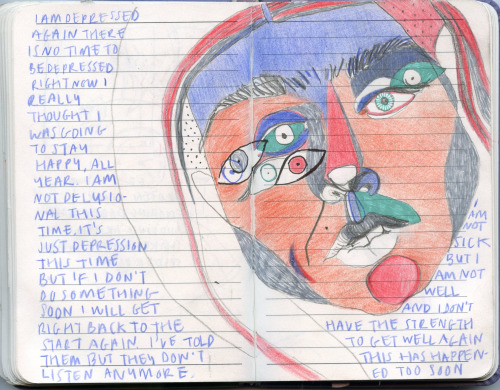 I AM DEPRESSED
AGAIN THERE
IS NO TIME TO
BE DEPRESSED
RIGHT NOW I
REALLY
THOUGHT I
WAS GOING
TO STAY
HAPPY, ALL
YEAR. I AM
NOT DELUSIO-
NAL THIS
TIME. IT'S
JUST DEPRESSION
THIS TIME
BUT IF I DON'T
DO SOMETHING
SOON I WILL GET
RIGHT BACK TO THE
START AGAIN. I'VE TOLD
THEM BUT THEY DON'T
LISTEN ANYMORE.
I
AM
NOT
SICK
BUT I
AM NOT
WELL
AND I DON'T
HAVE THE STRENGTH
TO GET WELL AGAIN
THIS HAS HAPPEN-
ED TOO SOON